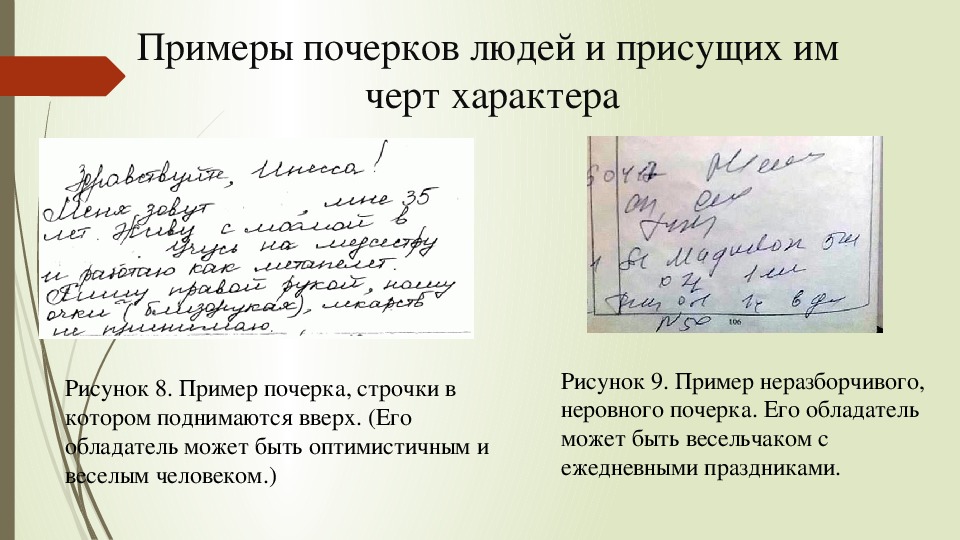 Примеры почерков людей и присущих им
черт характера
Здравствуйте, Инесса!
Меня зовут , мне 35
лет. Живу с мамой в
Учусь на медсестру
и работаю как метапелет.
Пишу правой рукой, ношу
очки (близорукая), лекарств
не принимаю.
Рисунок 8. Пример почерка, строчки в
котором поднимаются вверх. (Его
обладатель может быть оптимистичным и
веселым человеком.)
1
5ти
1 ми
в
N50
106
Рисунок 9. Пример неразборчивого,
неровного почерка. Его обладатель
может быть весельчаком с
ежедневными праздниками.